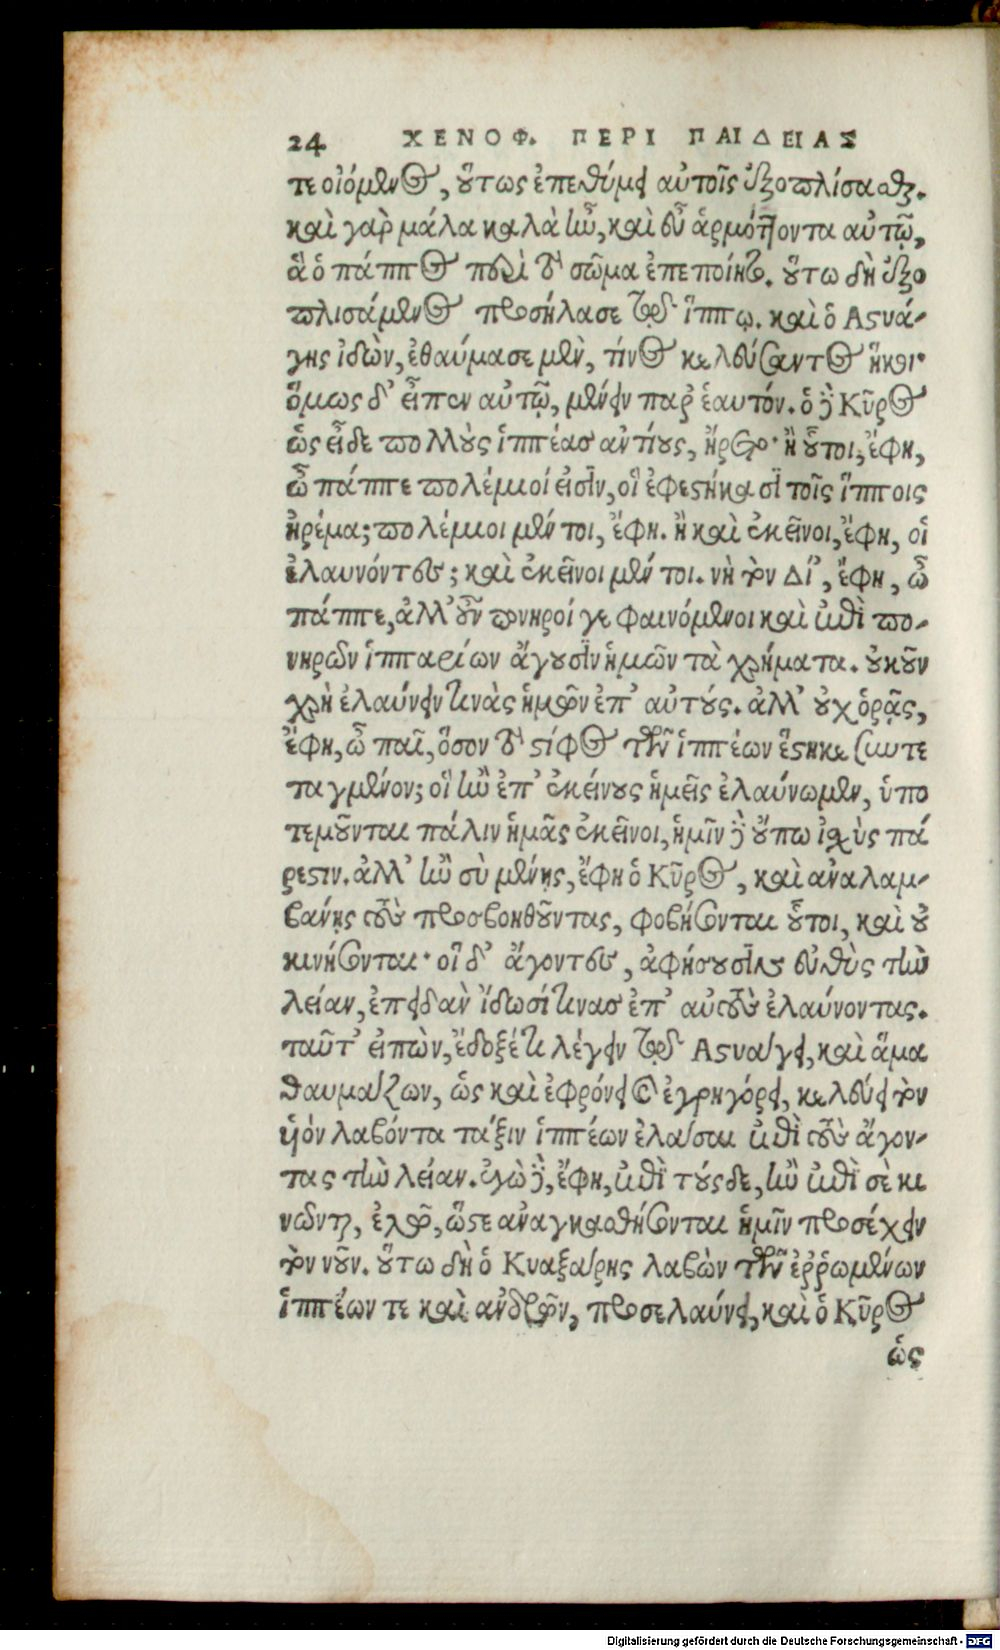 24 ΧΕΝΟΦ. ΠΕΡΙ ΠΑΙΔΕΙΑΣ
τε οἰόμενος, οὕτως ἐπεθύμει αὐτοῖς ἐξοπλίσασθαι.
καὶ γὰρ μάλα καλὰ ἦν, καὶ εὖ ἁρμόττοντα αὐτῷ,
ἃ ὁ πάππος περὶ τὸ σῶμα ἐπεποίητο. οὕτω δὴ ἐξο
πλισάμενος προσήλασε τῷ ἵππῳ. καὶ ὁ Αστυά-
γης ἰδὼν, ἐθαύμασε μὲν, τίνος κελεύσαντος ἥκοι·
ὅμως δ' εἶπεν αὐτῷ, μένειν παρ' ἑαυτόν. ὁ δὲ Κῦρος
ὡς εἶδε πολλοὺς ἱππέας ἀντίους, ἤρετο· ἦ οὗτοι, ἔφη,
ὦ πάππε πολέμιοί εἰσιν, οἳ ἐφεστήκασι τοῖς ἵπποις
ἠρέμα; πολέμιοι μέν τοι, ἔφη. ἦ καὶ ἐκεῖνοι, ἔφη, οἱ
ἐλαυνόντες; καὶ ἐκεῖνοι μέν τοι. νὴ τὸν Δί', ἔφη, ὦ
πάππε, ἀλλ' οὖν πονηροί γε φαινόμενοι καὶ ἐπὶ πο-
νηρῶν ἱππαρίων ἄγουσιν ἡμῶν τὰ χρήματα. οὐκοῦν
χρὴ ἐλαύνειν τινὰς ἡμῶν ἐπ' αὐτούς. ἀλλ' οὐχ ὁρᾷς,
ἔφη, ὦ παῖ, ὅσον τὸ στίφος τῶν ἱππέων ἕστηκε συντε
ταγμένον; οἳ ἢν ἐπ' ἐκείνους ἡμεῖς ἐλαύνωμεν, ὑπο
τεμοῦνται πάλιν ἡμᾶς ἐκεῖνοι, ἡμῖν δὲ οὔπω ἰσχὺς πά
ρεστιν. ἀλλ' ἢν σὺ μένῃς, ἔφη ὁ Κῦρος, καὶ ἀναλαμ-
βάνῃς τοὺς προσβοηθοῦντας, φοβήσονται οὗτοι, καὶ οὐ
κινήσονται· οἱ δ' ἄγοντες, ἀφήσουσιν εὐθὺς τὴν
λείαν, ἐπειδὰν ἴδωσί τινας ἐπ' αὐτοὺς ἐλαύνοντας.
ταῦτ' εἰπὼν, ἔδοξέ τι λέγειν τῷ Αστυάγει, καὶ ἅμα
θαυμάζων, ὡς καὶ ἐφρόνει καὶ ἐγρηγόρει, κελεύει τὸν
υἱὸν λαβόντα τάξιν ἱππέων ἐλάσαι ἐπὶ τοὺς ἄγον-
τας τὴν λείαν. ἐγὼ δὲ, ἔφη, ἐπὶ τούσδε, ἢν ἐπὶ σὲ κι
νῶνται, ἐλῶ, ὥστε ἀναγκασθήσονται ἡμῖν προσέχειν
τὸν νοῦν. οὕτω δὴ ὁ Κυαξάρης λαβὼν τῶν ἐῤῥωμένων
ἱππέων τε καὶ ἀνδρῶν, προσελαύνει, καὶ ὁ Κῦρος
ὡς
Digitalisierung gefördert durch die Deutsche Forschungsgemeinschaft - DFG